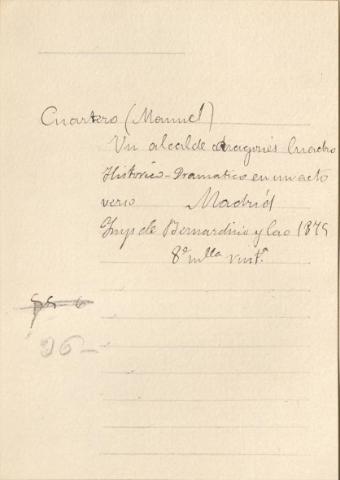 Cuartero (Manuel)
Un alcalde Aragonés Cuadro
Historico-Dramatico en un acto
verso Madrid
Imp de Bernardino y Cao 1875
8º mlla
96—